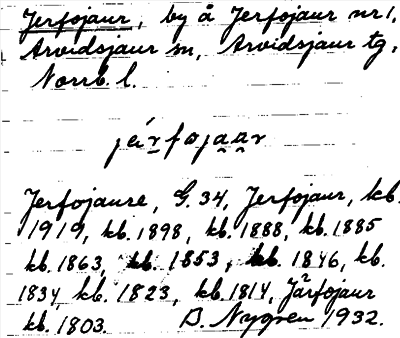 Jerfojaur, by å Jerfojaur nr 1,
Arvidsjaur sn, Arvidsjaur tg,
Norrb. l.
Jerfojaure, G. 34, Jerfojaur, kb.
1919, kb. 1898, kb. 1888, kb. 1885
kb. 1863, kb. 1853, kb. 1846, kb.
1834, kb. 1823, kb. 1814, Järfojaur
kb. 1803. B. Nygren 1932.